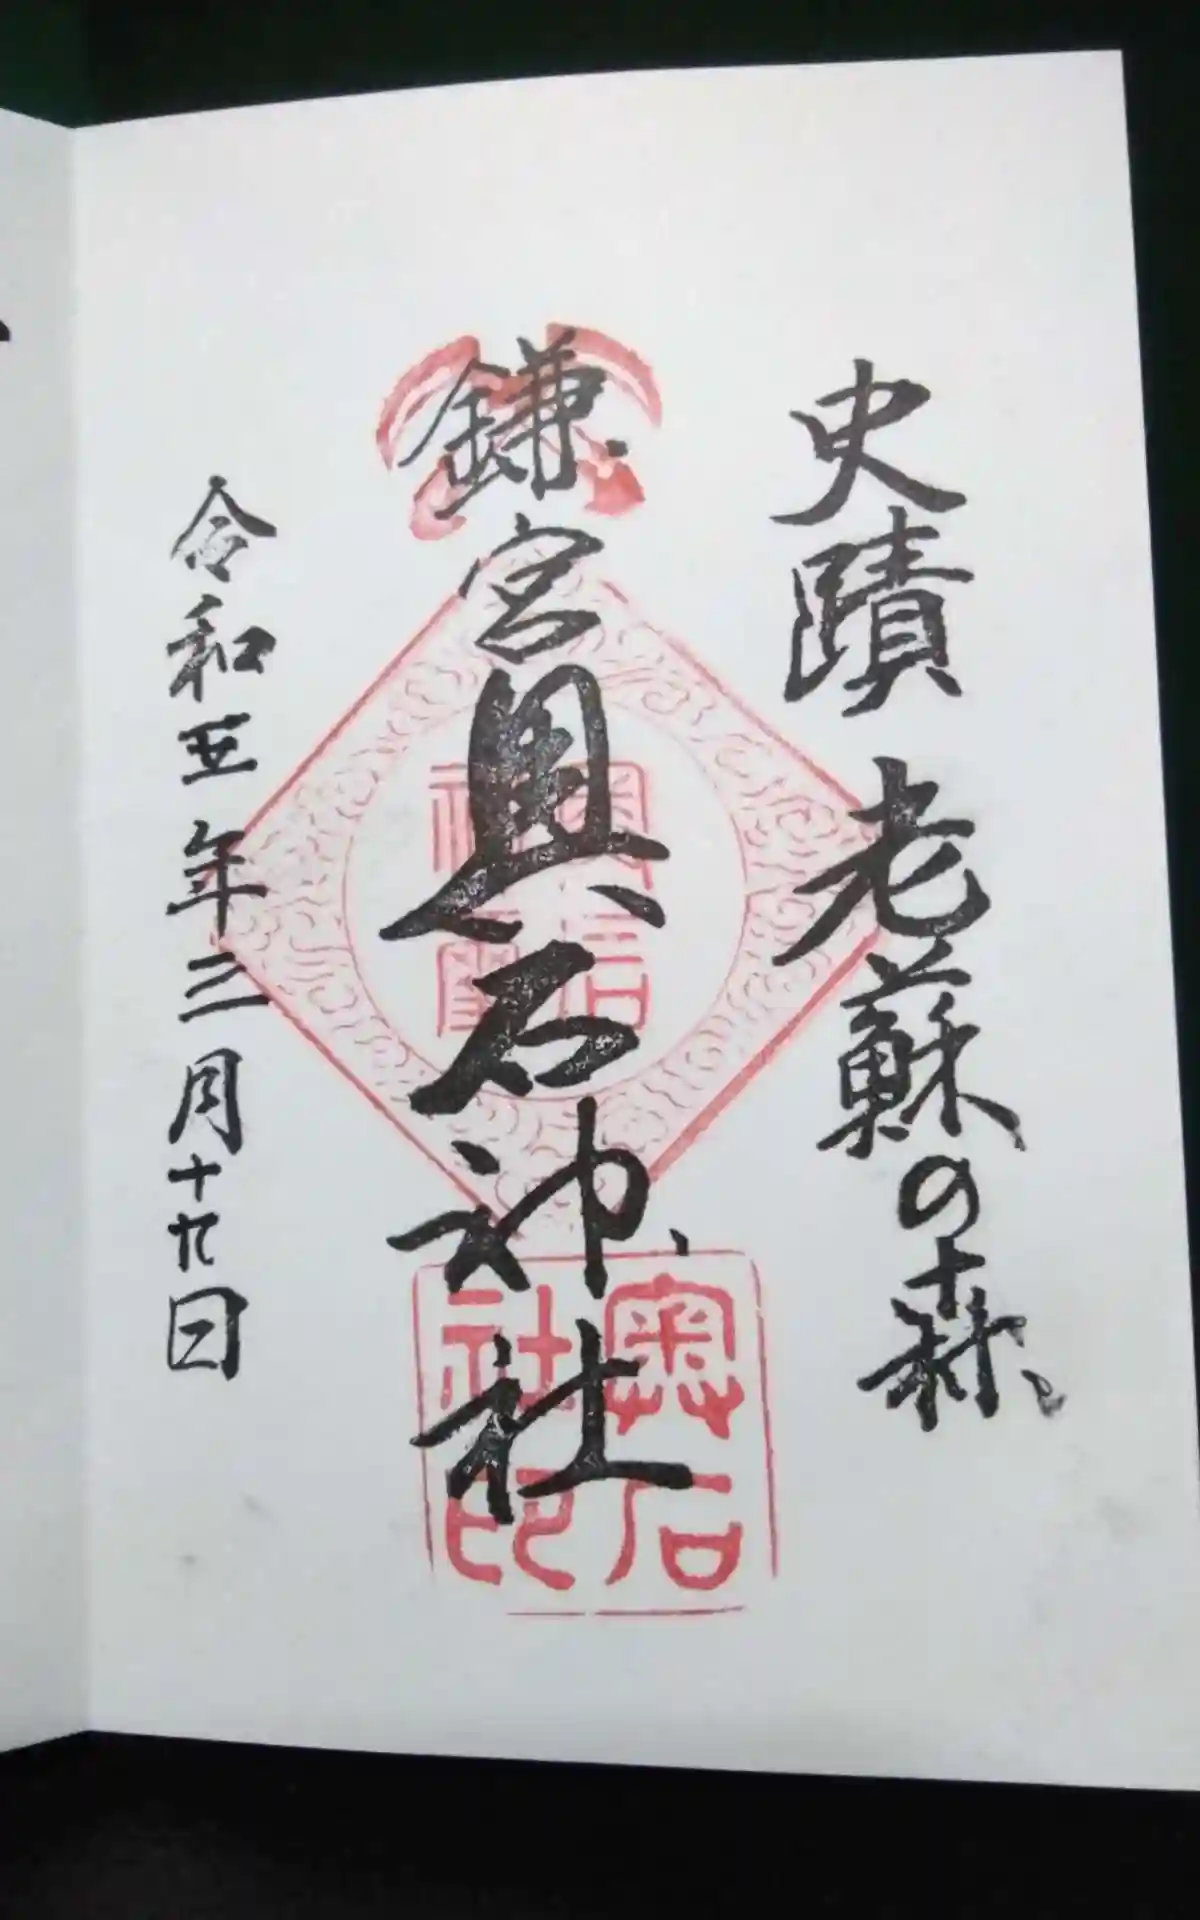 史蹟 老蘇の森
鎌宮奥石神社
令和五年三月十九日
奥石
社印